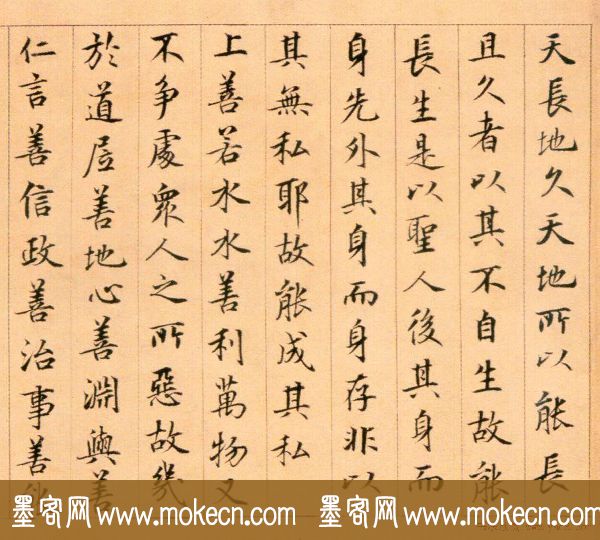 天長地久天地所以能長
且久者以其不自生故能
長生是以聖人後其身而
身先外其身而身存非以
其無私耶故能成其私
上善若水水善利萬物又
不争處衆人之所惡故幾
於道居善地心善淵與善
仁言善信政善治事善
墨客网 www.mokecn.com 墨客网 www.mokecn.com